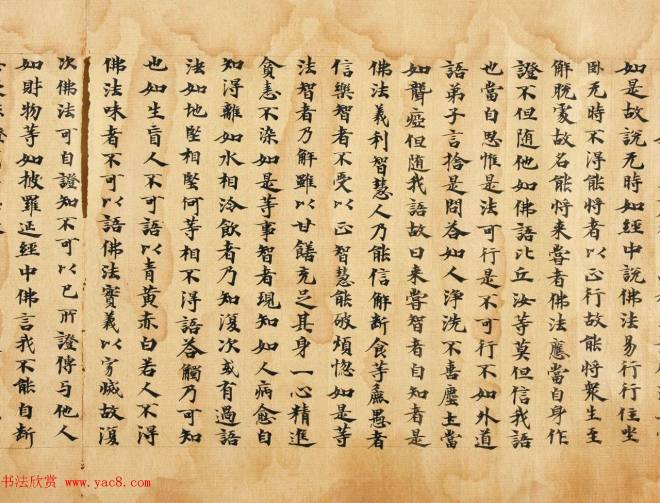 如是故說无時如經中說佛法易行行住坐
卧无時不得能將者以正行故能將衆生至
解脫處故名能將來嘗者佛法應當自身作
證不但随他如佛語比丘汝等莫但信我語
也當自思惟是法可行是不可行不如外道
語弟子言捨是問荅如人淨洗不喜塵土當
如聾瘂但随我語故曰來嘗智者自知者是
佛法義利智慧人乃能信解断食等麁愚者
信樂智者不受以正智慧能破煩惱如是等
法智者乃解雖以甘饍充足其身一心精進
貪恚不染如是等事智者現知如人病愈自
知得離如水相冷飲者乃知復次或有過語
法如地堅相堅何等相不得語荅觸乃可知
也如生盲人不可語以青黃赤白若人不得
佛法味者不可以語佛法實義以寂滅故復
次佛法可自證知不可以已所證傳与他人
如財物等如披羅延經中佛言我不能自断
书法欣赏 www.yac8.com